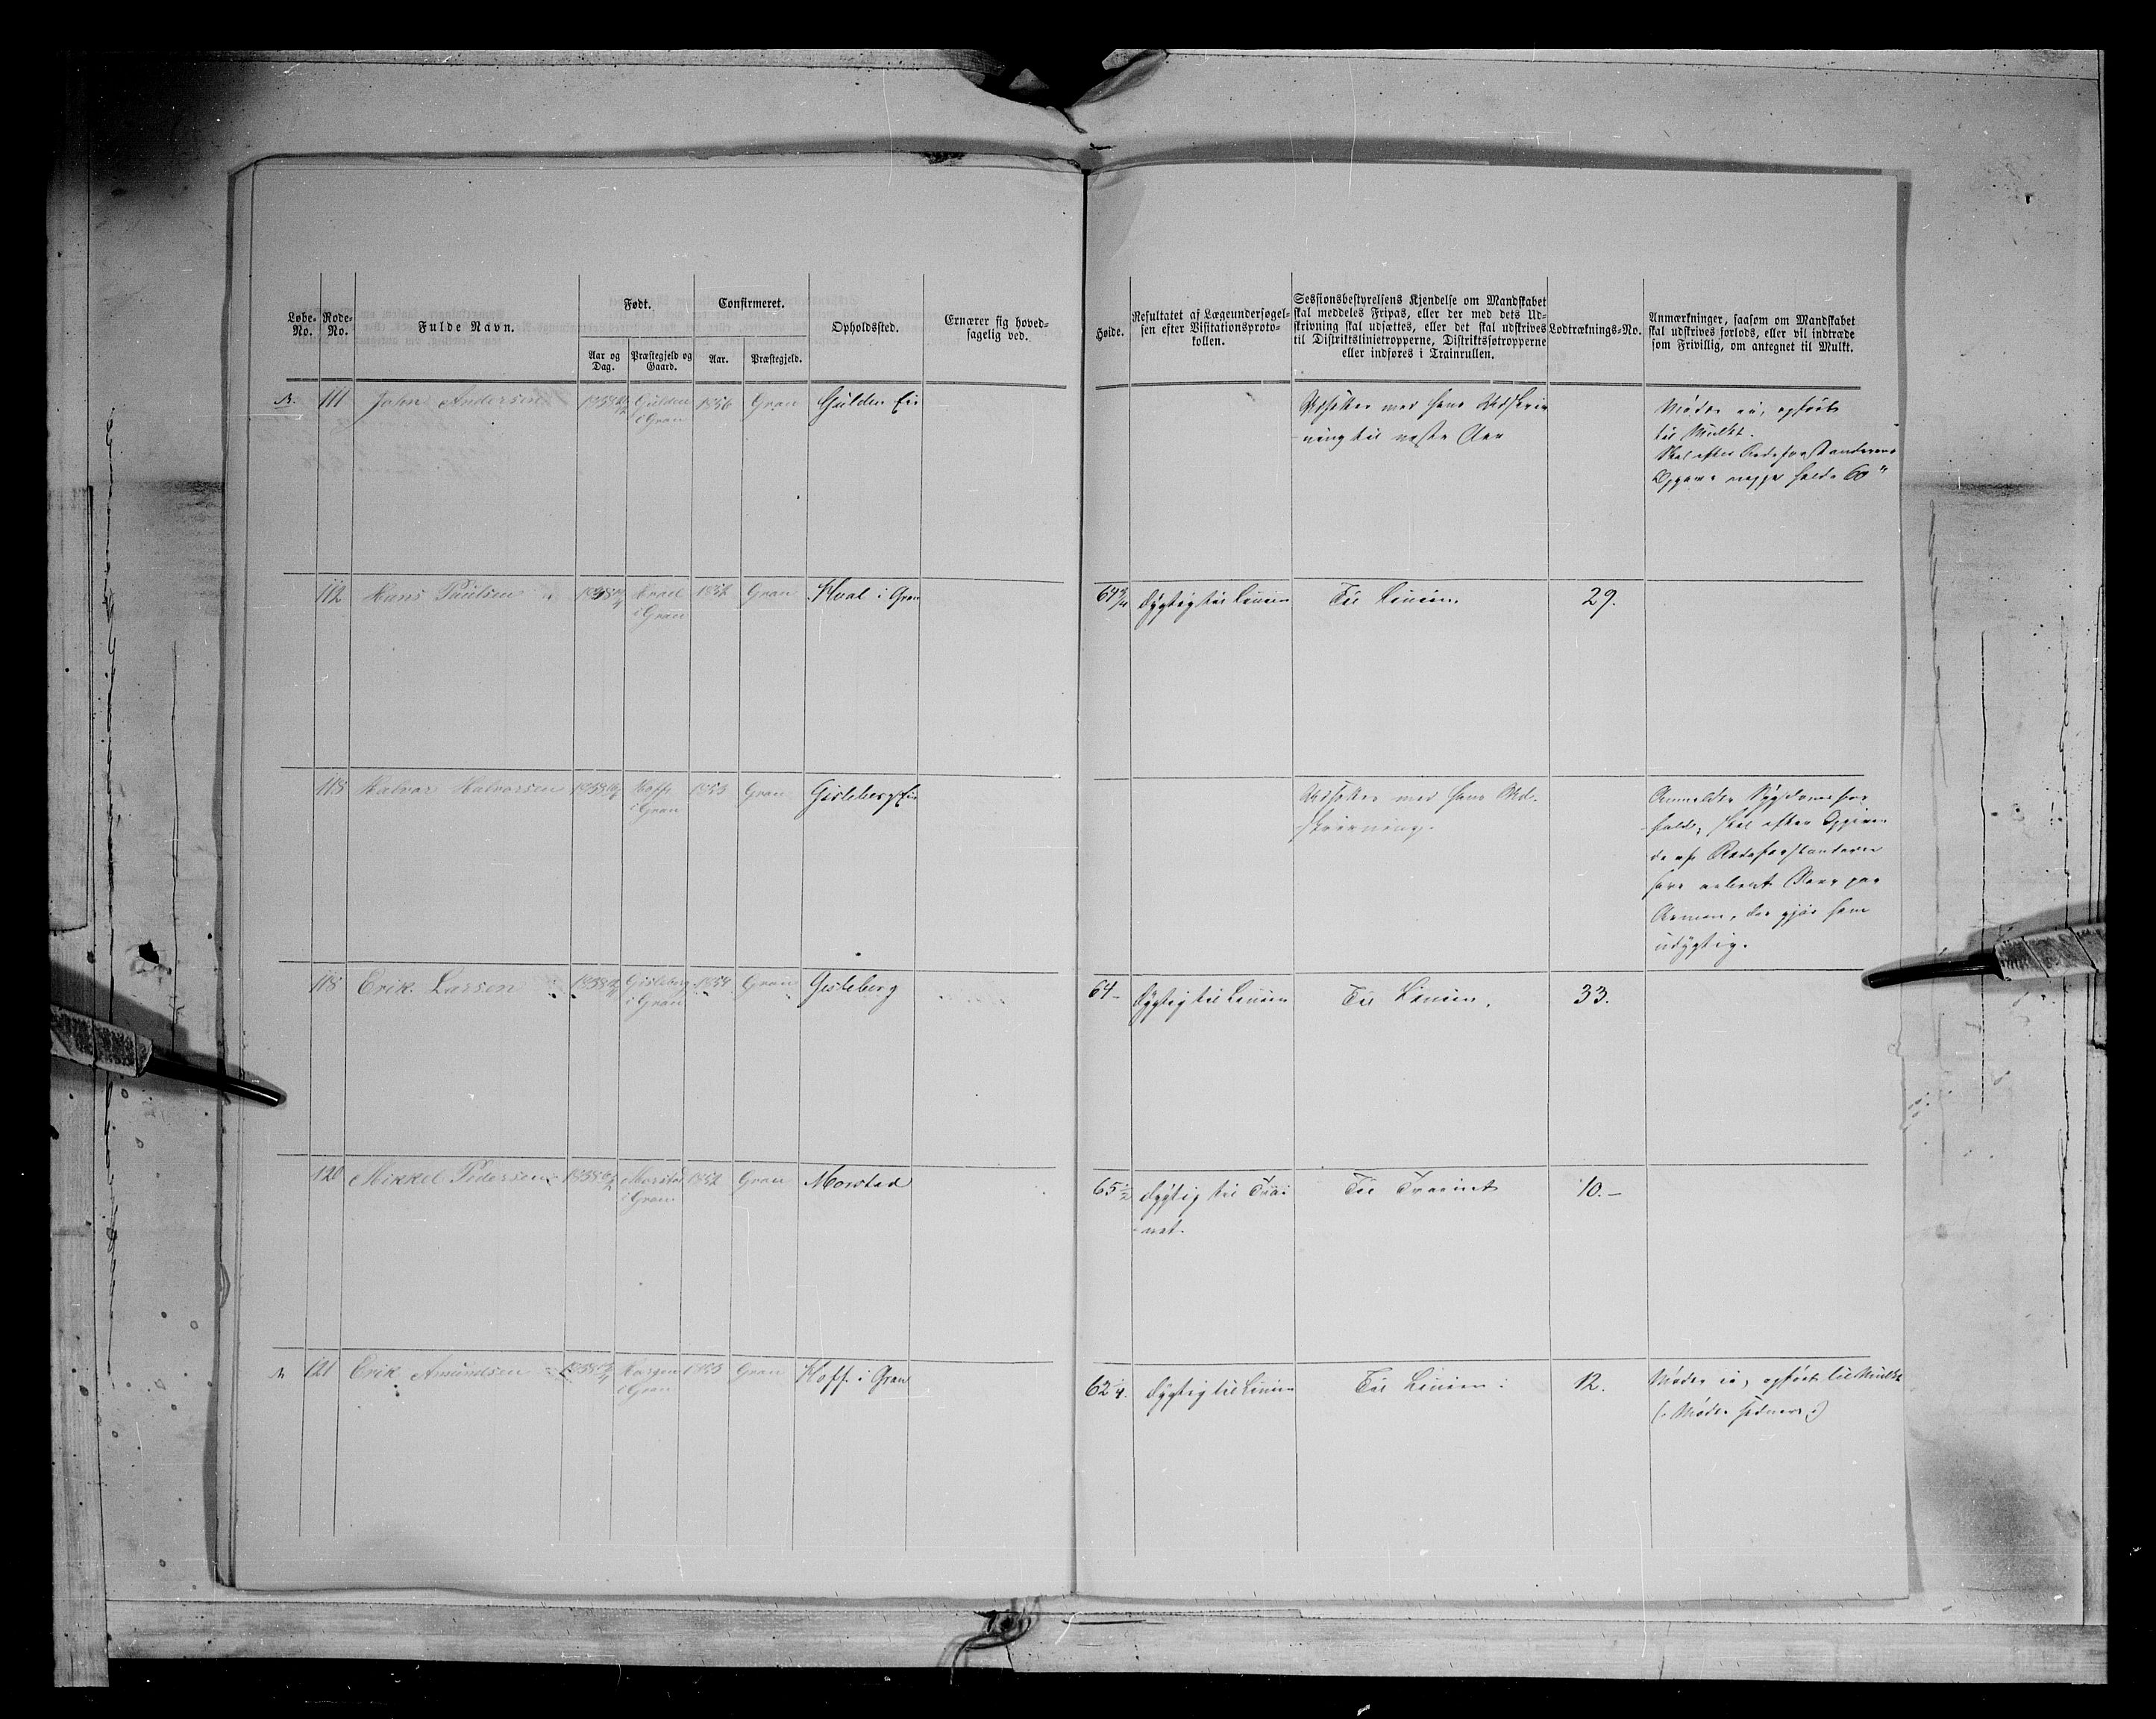 Løbe-No.
Rode-No.
Fulde Navn.
Født.
Aar og Dag.
Præstegjeld og Gaard.
Confirmeret.
Aar.
Præstegjeld.
Opholdssted.
Ernærer sig hovedsagelig ved.
Høide.
Resultatet af Lægeundersøgelsen efter Visitationsprotokollen.
Sessionsbestyrelsens Kjendelse om Mandskabet
skal meddeles Fripas, eller der med dets Ud-
skrivning skal udsættes, eller det skal udskrives
til Distriktslinietropperne, Distriktsfotropperne
eller indføres i Trainrullen.
Lodtræknings-No.
Anmærkninger, saasom om Mandskabet
skal udskrives forlods, eller vil indtræde
som Frivillig, om antegnet til Mulkt.
111 John Andersen 1838 Gulden 1856 Gran Gulden Eie
i Gran
Udsættes med hans Udskriv-
ning til næste Aar
Møder ei, opført
til Mulkt.
Skal efter Rodeforstanderens
Opgave neppe holde 60"
112 Hans Paulsen 1838 1852 Gran Hval i Gran 64 3/4 dygtig til Linien Til Linien. 29.
i Gran
Halvor Halvorsen 1838 Hoff 1853 Gran Gisleberg Eie
i Gran
Udsættes med hans Ud-
skrivning.
Anmeldte Sygdomsfor-
fald, skal efter Opgiven-
de af Rodeforstanderen
have
Armen, der gjør ham
udygtig.
118 Erik Larsen 1838 Gisleberg 1854 Gran Gisleberg 64 - dygtig til Linien Til Linien. 33.
i Gran
120 Mikkel Pedersen 1838 Morstad 1852 Gran Morstad 65 1/2 dygtig til Trai- Til Trainet 10. -
i Gran
net.
121 Erik Amundsen 1838 1853 Gran Hoff i Gran 62 1/4. dygtig til Linien Til Linien. 12. Møder ei, opført til Mulkt
i Gran
(: Mødte sednere :)